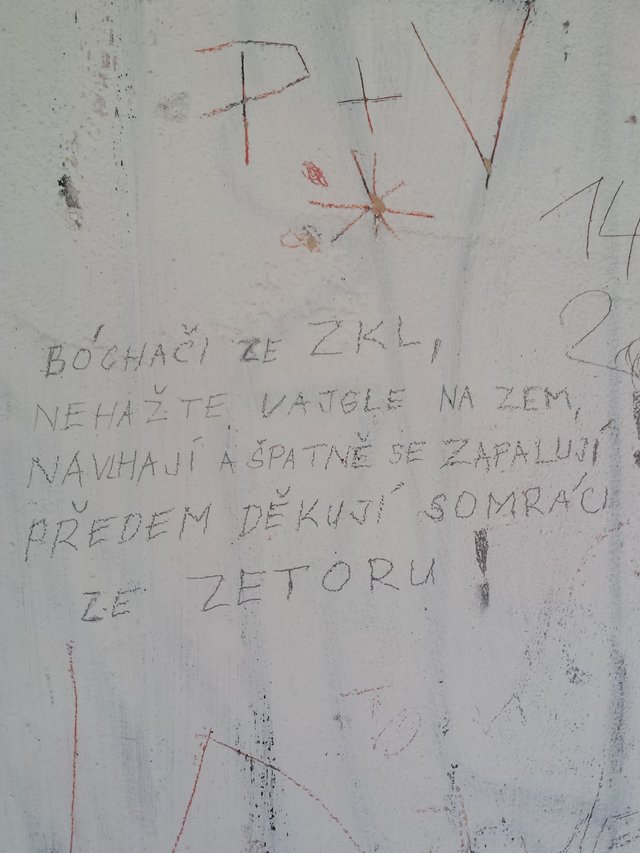 P + V
14
BÓHAČI ZE ZKL,
NEHAŽTE VAJGLE NA ZEM,
NAVLHAJÍ A ŠPATNĚ SE ZAPALUJÍ
PŘEDEM DĚKUJÍ SOMRÁCI
ZE ZETORU!